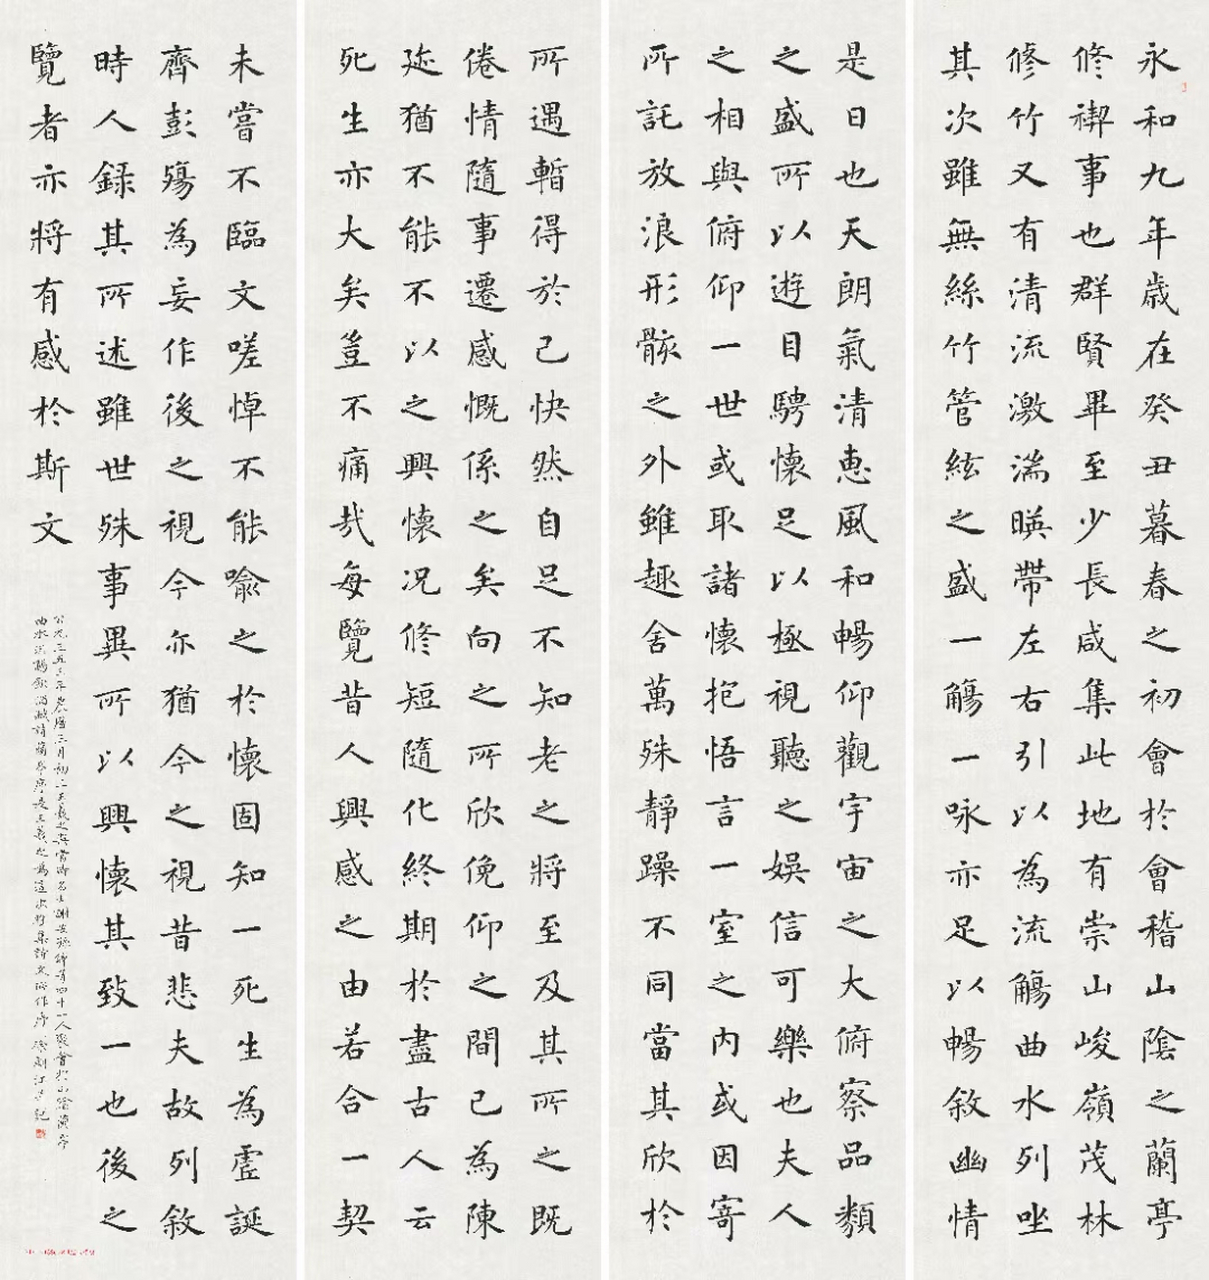 永和九年歲在癸丑暮春之初會於會稽山陰之蘭亭
修禊事也群賢畢至少長咸集此地有崇山峻嶺茂林
修竹又有清流激湍暎帶左右引以為流觴曲水列坐
其次雖無絲竹管絃之盛一觴一咏亦足以暢敘幽情
是日也天朗氣清惠風和暢仰觀宇宙之大俯察品類
之盛所以遊目騁懷足以極視聽之娛信可樂也夫人
之相與俯仰一世或取諸懷抱悟言一室之內或因寄
所託放浪形骸之外雖趣舍萬殊靜躁不同當其欣於
所遇暫得於己快然自足不知老之將至及其所之既
倦情隨事遷感慨係之矣向之所欣俛仰之間已為陳
迹猶不能不以之興懷况修短隨化終期於盡古人云
死生亦大矣豈不痛哉每覽昔人興感之由若合一契
未嘗不臨文嗟悼不能喻之於懷固知一死生為虛誕
齊彭殤為妄作後之視今亦猶今之視昔悲夫故列敘
時人錄其所述雖世殊事異所以興懷其致一也後之
覽者亦將有感於斯文
公元三五三年農曆三月初三王羲之與當時名士謝安孫綽等四十一人聚會於山陰蘭亭
曲水流觴飲酒賦詩蘭亭序是王羲之為這次集詩文所作序